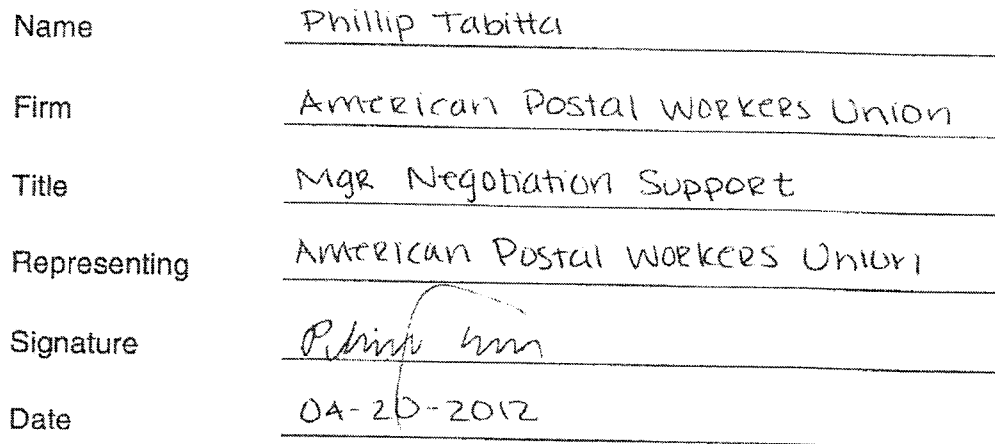 Name Phillip Tabitta
Firm American Postal Workers Union
Title Mgr Negotiation Support
Representing American Postal Workers Union
Signature
Date 04-20-2012